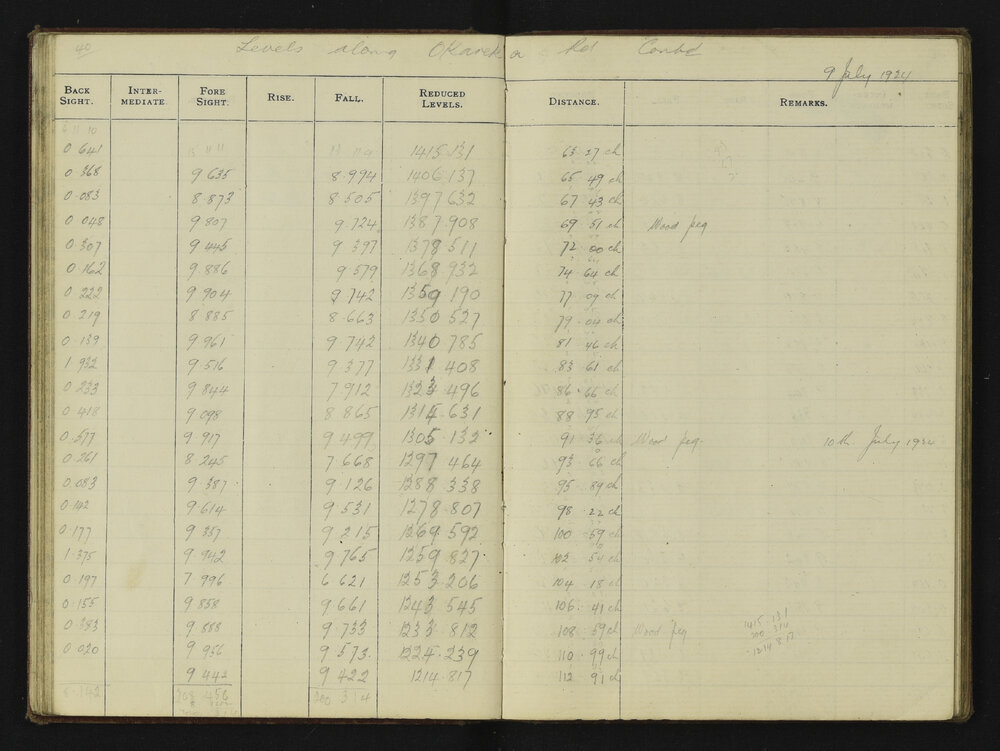 40 Levels along Okareka Rd Contd
9 July 1924
BACK SIGHT. INTER- MEDIATE FORE SIGHT. RISE. FALL. REDUCED LEVELS. DISTANCE. REMARKS.
0 641 1415.131 63.27 ch
0 368 9 635 8.994 1406 137 65.49 ch
0.083 8.873 8 505 1397 632 67.43 ch
0 048 9 807 9.724 1387.908 69.51 ch Wood peg
0 307 9 445 9 397 1378 511 72.00 ch
0.162 9.886 9 579 1368 932 74.64 ch
0.222 9 904 9 742 1359 190 77.09 ch
0.219 8 885 8.663 1350 527 79.04 ch
0.139 9 961 9.742 1340 785 81.46 ch
1 932 9.516 9.377 1331 408 83.61 ch
0 233 9 844 7.912 1323.496 86.66 ch
0.418 9 098 8.865 1314.631 88.95 ch
0.577 9.917 9 499 1305.132 91.36 ch Wood peg. 10th July 1924
0.261 8.245 7 668 1297 464 93.66 ch
0.083 9.387 9 126 1288 338 95.89 ch
0.142 9.614 9 531 1278.807 98.22 ch
0.177 9 357 9 215 1269.592 100.59 ch
1.375 9 942 9.765 1259 827 102.54 ch
0.197 7 996 6 621 1253 206 104.18 ch
0.155 9 858 9.661 1243 545 106.41 ch
0.383 9 888 9.733 1233 812 108.59 ch Wood peg
0.020 9 956 9.573 1224.239 110.99 ch
9 442 9 422 1214.817 112 91 ch
8.142 208 456 200 314
8 142
200 314
1415 131
200 314
1214 817